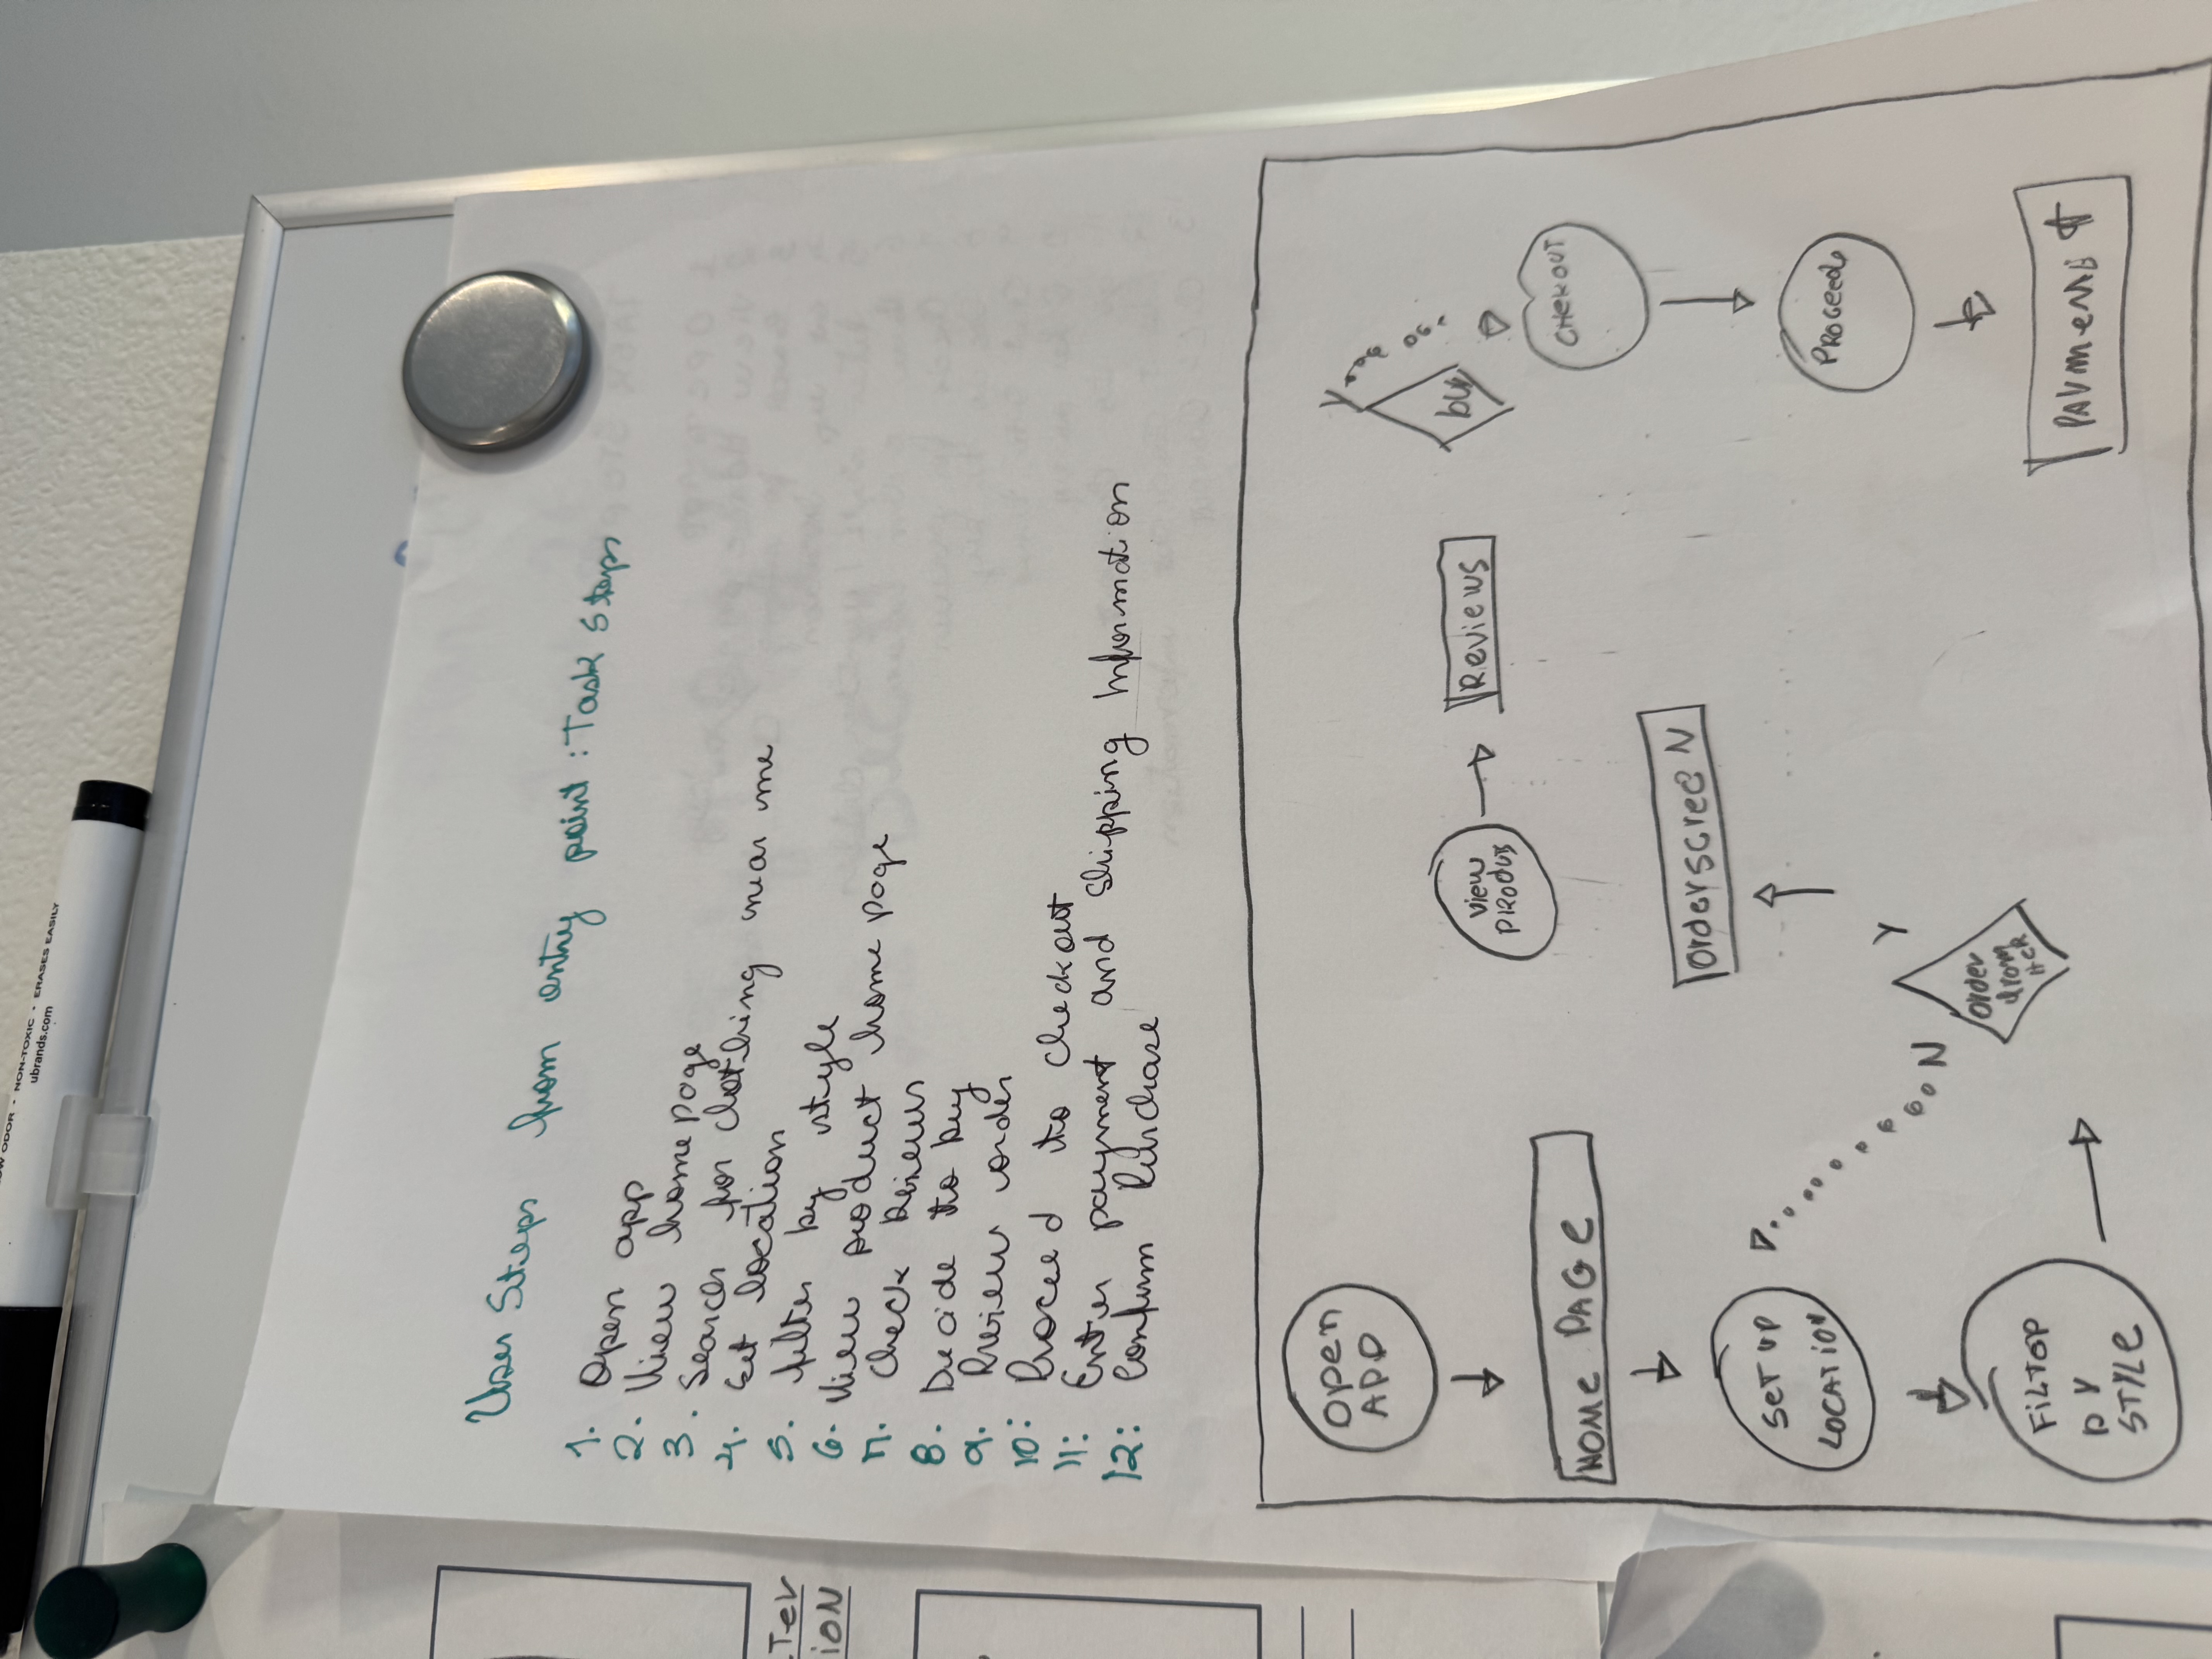 LOW ODOR • NON-TOXIC • ERASES EASILY
ubrands.com
User Steps from entry point: Task Steps
1. Open app
2. View home page
3. Search for clothing near me
4. Set location
5. filter by style
6. View product home page
7. Check Reviews
8. Decide to buy
9. Review order
10: Proceed to checkout
11: Enter payment and shipping Information
12: Confirm Purchase
TER
ION
OPen
APP
HOMe PAGe
SeT UP
LOCATION
FiLTOP
BY
STYLe
N
Y
Order
from
Her
OrderscreeN
View
PRODUTS
Reviews
Y
buy
CHeKOUT
PROCeed
PAYMeNt